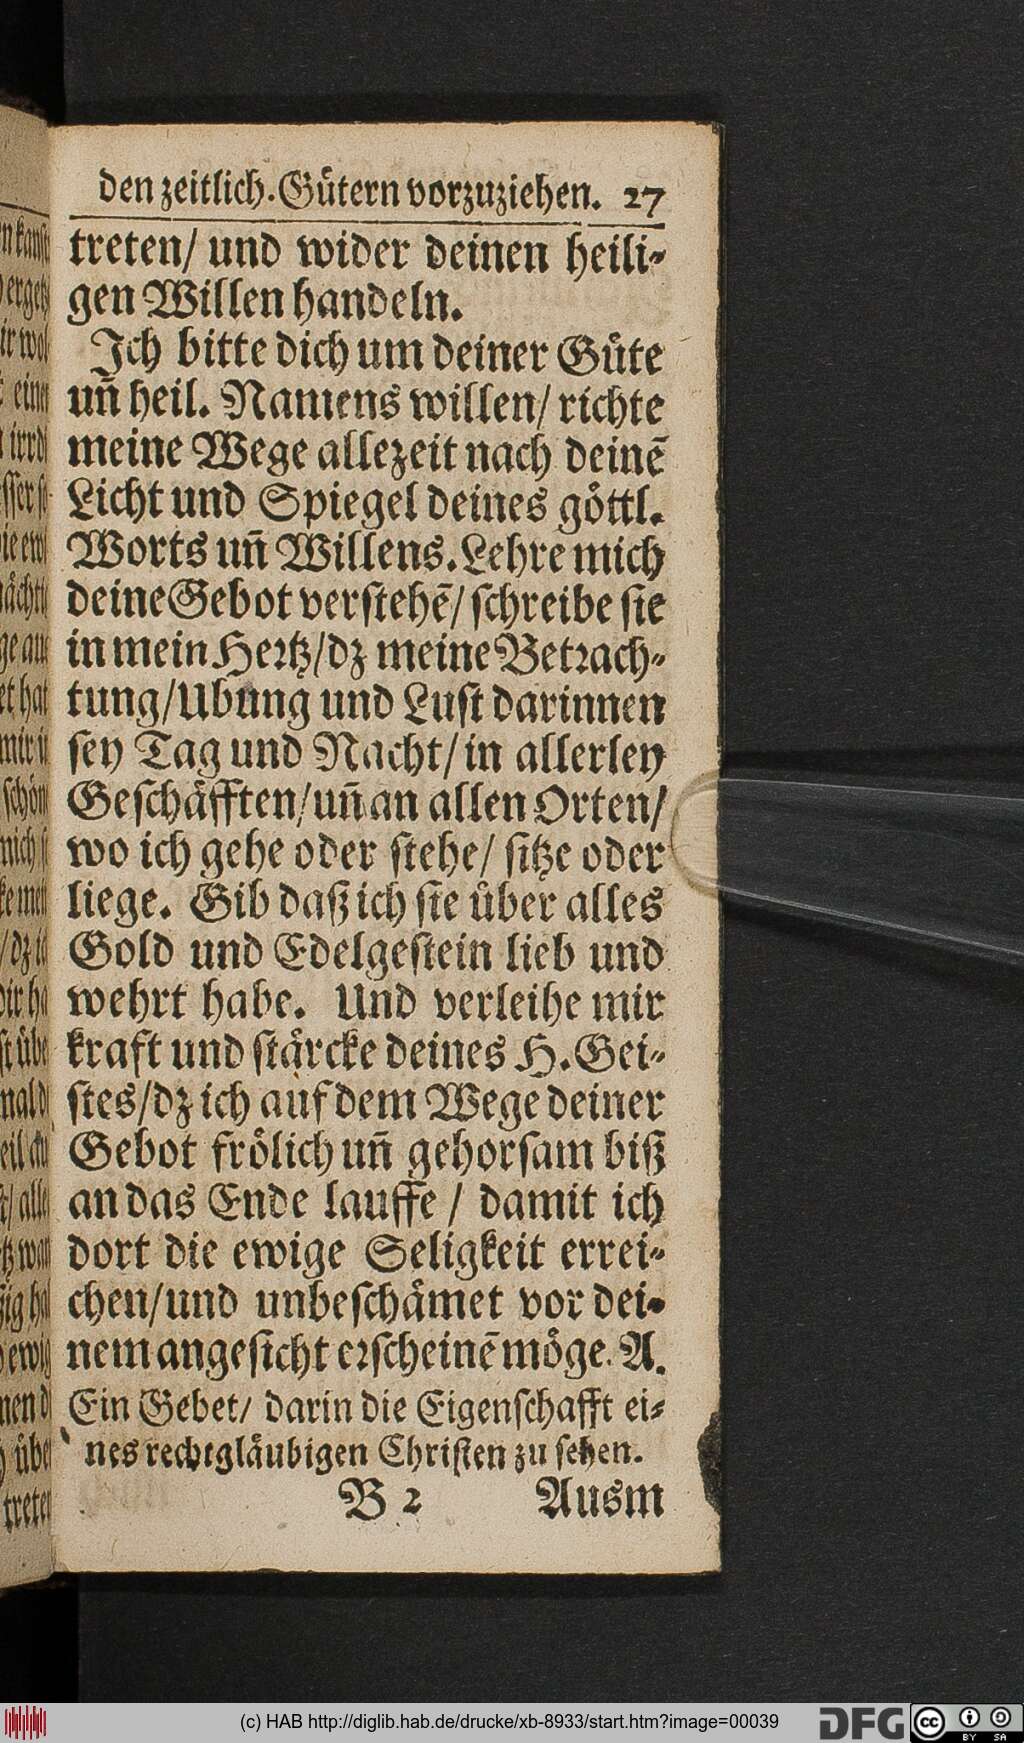 den zeitlich. Gütern vorzuziehen. 27
treten/ und wider deinen heili-
gen Willen handeln.
Ich bitte dich um deiner Güte
uñ heil. Namens willen/ richte
meine Wege allezeit nach deinẽ
Licht und Spiegel deines göttl.
Worts uñ Willens. Lehre mich
deine Gebot verstehẽ/ schreibe sie
in mein Hertz/ dz meine Betrach-
tung/ Ubung und Lust darinnen
sey Tag und Nacht/ in allerley
Geschäfften/ uñ an allen Orten/
wo ich gehe oder stehe/ sitze oder
liege. Gib daß ich sie über alles
Gold und Edelgestein lieb und
wehrt habe. Und verleihe mir
kraft und stärcke deines H. Gei-
stes/ dz ich auf dem Wege deiner
Gebot frölich uñ gehorsam biß
an das Ende lauffe / damit ich
dort die ewige Seligkeit errei-
chen/ und unbeschämet vor dei-
nem angesicht erscheinẽ möge. A.
Ein Gebet/ darin die Eigenschafft ei-
nes rechtgläubigen Christen zu sehen.
B 2 Ausm
(c) HAB http://diglib.hab.de/drucke/xb-8933/start.htm?image=00039
DFG cc BY SA